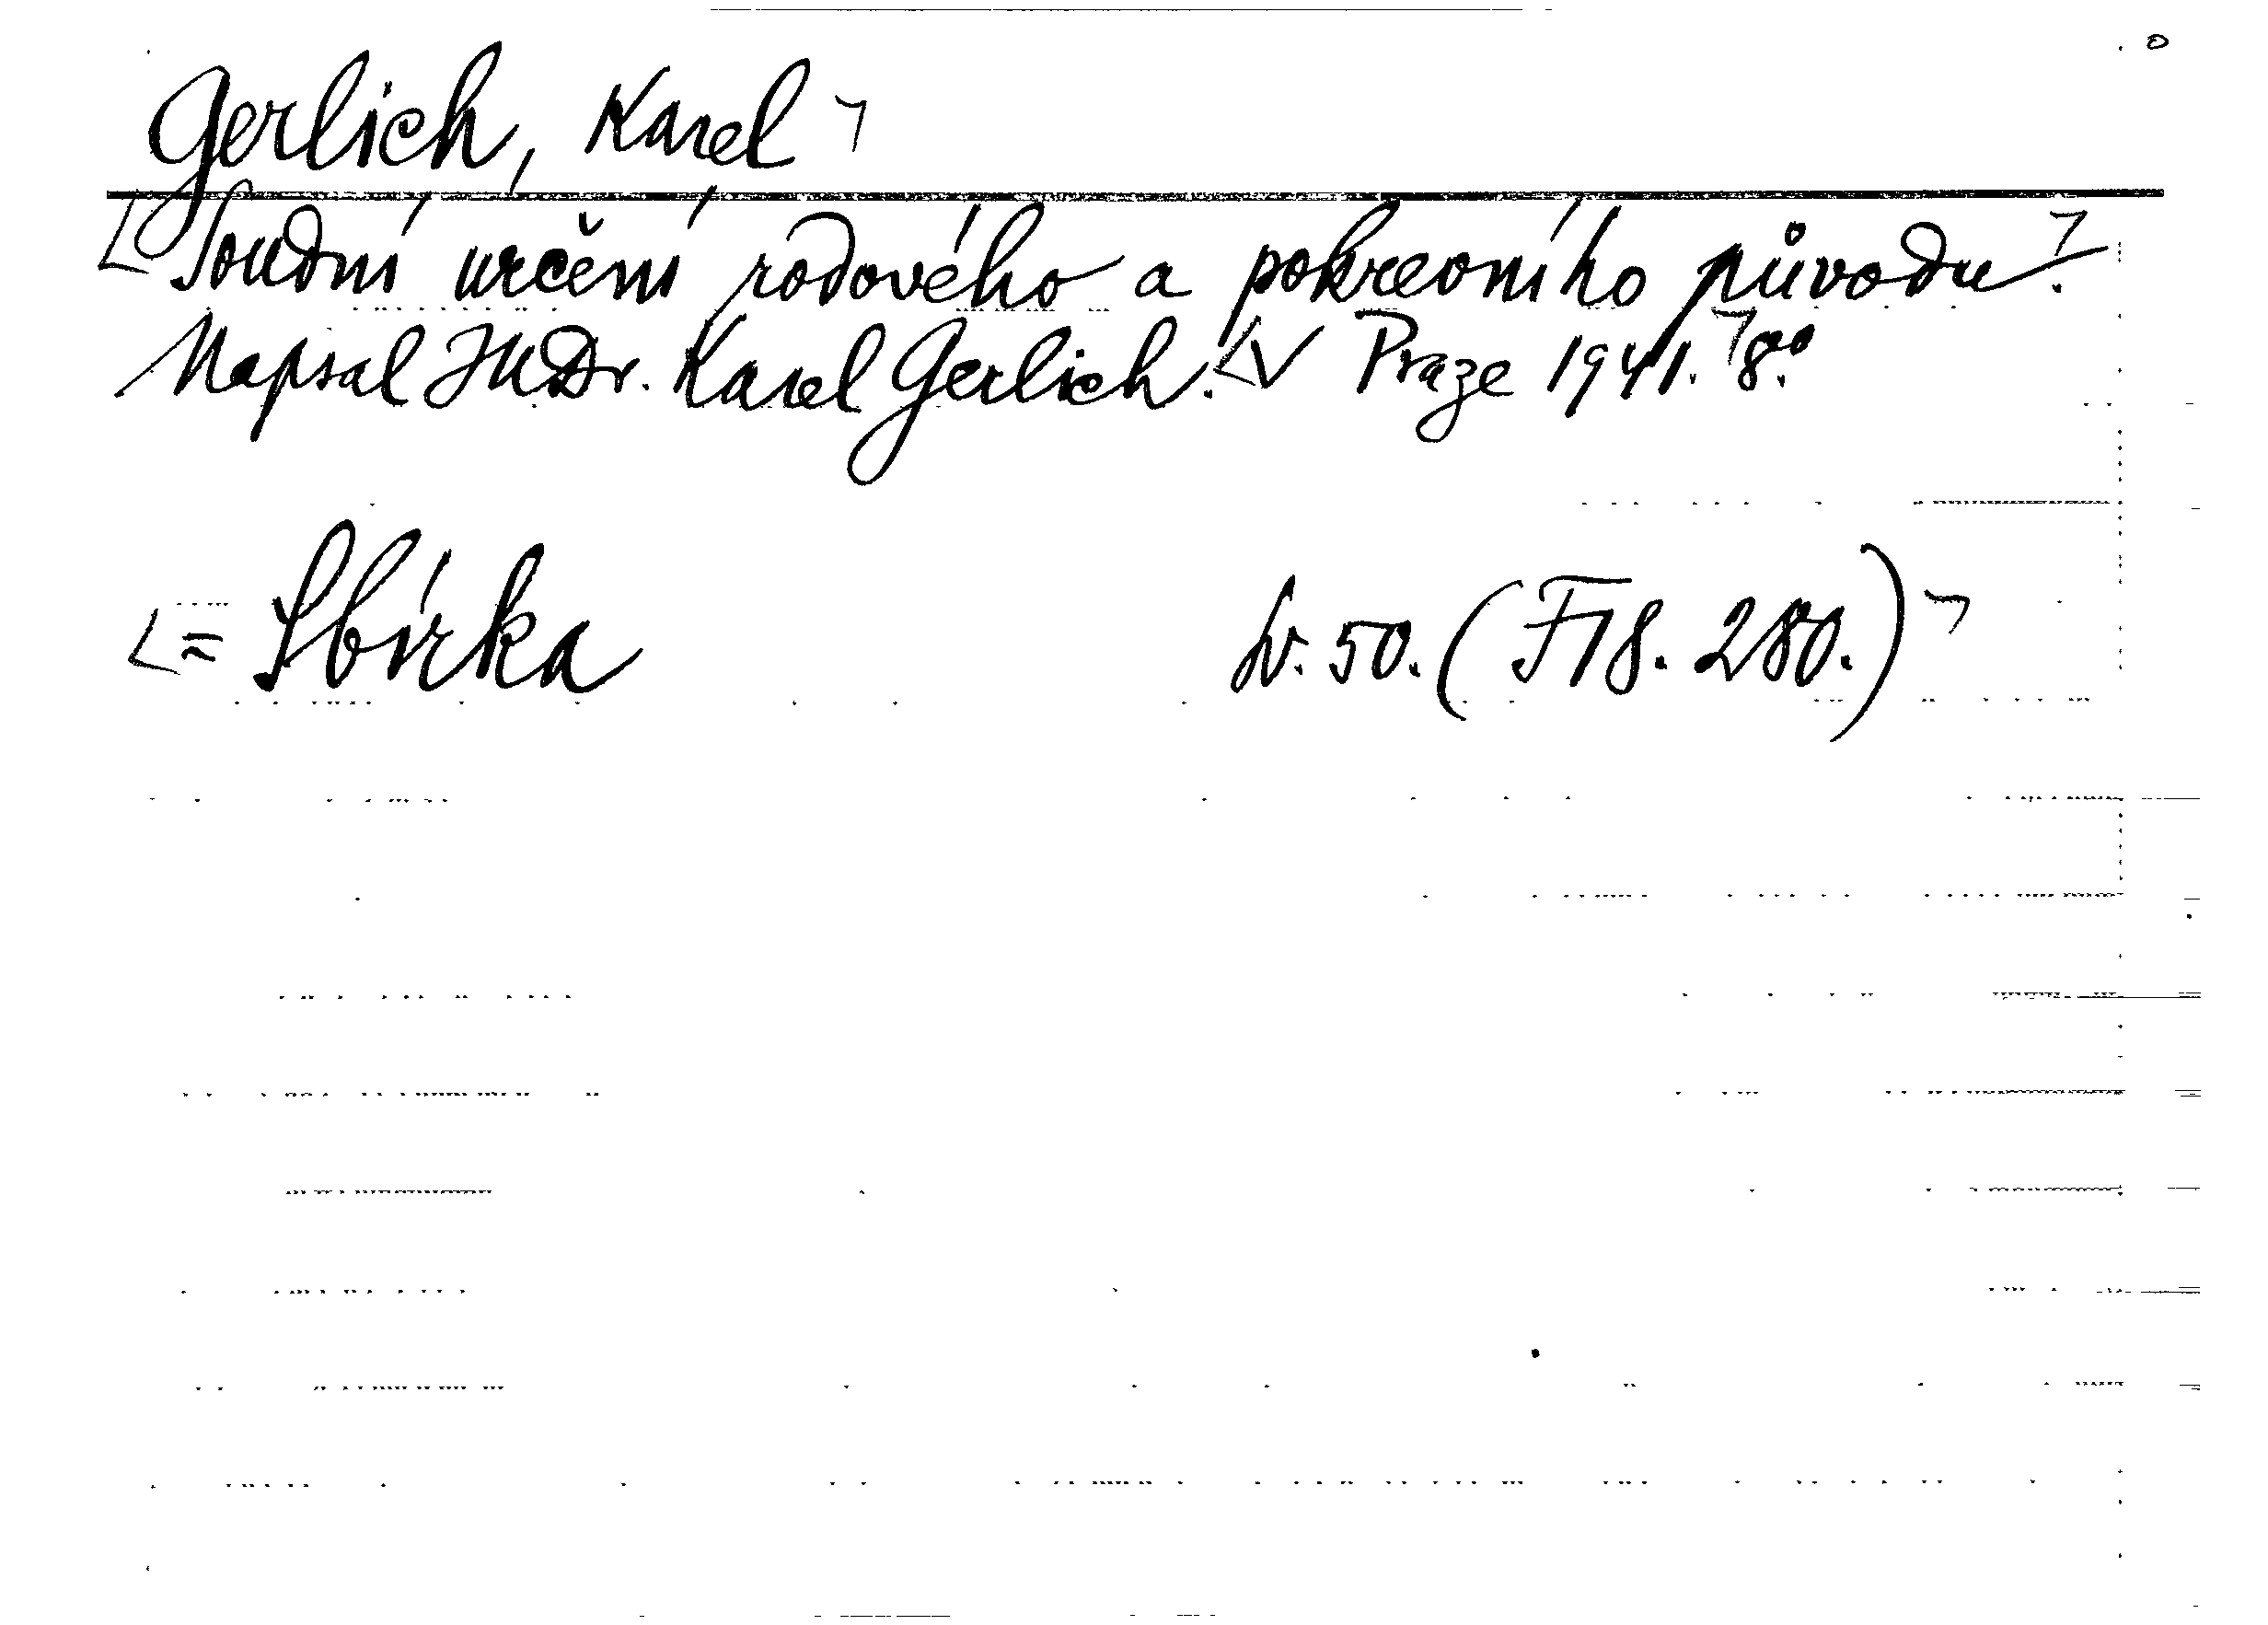 Gerlich, Karel
Soudní určení rodového a pokrevního původu.
Napsal JUDr. Karel Gerlich. V Praze 1941. 8°.
= Sbírka sv. 50. (F 18. 280.)